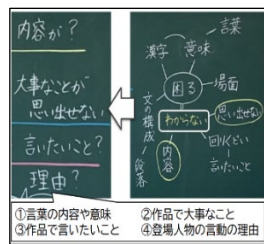 内容が?
大事なことが
思い出せない
言いたいこと?
理由?
言葉
漢字
意味
困る
場面
文の構成
わからない
思い出せない
段落
内容
回りくどい
言いたいこと
①言葉の内容や意味
②作品で大事なこと
③作品で言いたいこと
④登場人物の言動の理由